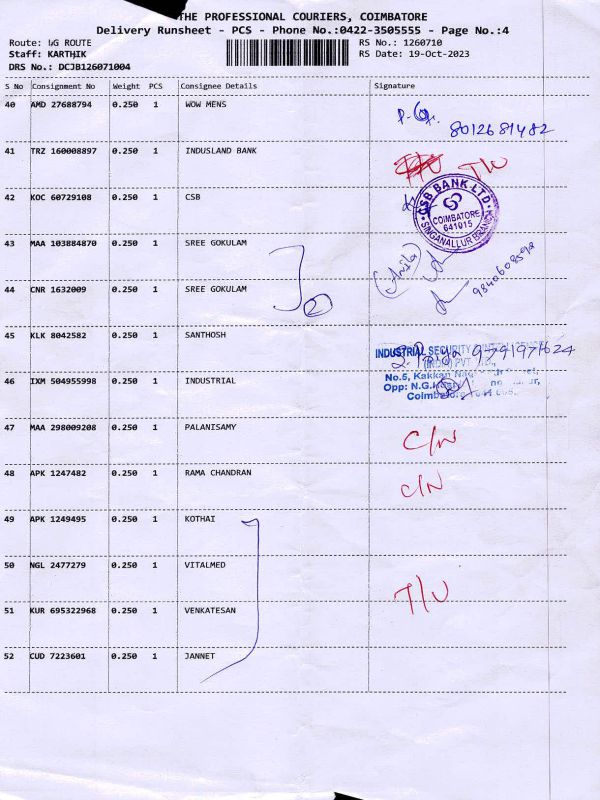 THE PROFESSIONAL COURIERS, COIMBATORE
Delivery Runsheet - PCS - Phone No.:0422-3505555 - Page No.:4
Route: NG ROUTE
RS No.: 1260710
Staff: KARTHIK
RS Date: 19-Oct-2023
DRS No.: DCJB126071004
S No Consignment No Weight PCS Consignee Details Signature
40 AMD 27688794 0.250 1 WOW MENS
8012681482
41 TRZ 160008897 0.250 1 INDUSLAND BANK T/U T/U
42 KOC 60729108 0.250 1 CSB
CSB BANK LTD.
COIMBATORE
641015
SINGANALLUR BRANCH
43 MAA 103884870 0.250 1 SREE GOKULAM
44 CNR 1632009 0.250 1 SREE GOKULAM
2
45 KLK 8042582 0.250 1 SANTHOSH
9791971624
INDUSTRIAL SECURITY
46 IXM 504955998 0.250 1 INDUSTRIAL
No.5, Kakkan
Opp: N.G.
47 MAA 298009208 0.250 1 PALANISAMY C/N
48 APK 1247482 0.250 1 RAMA CHANDRAN C/N
49 APK 1249495 0.250 1 KOTHAI
50 NGL 2477279 0.250 1 VITALMED
T/U
51 KUR 695322968 0.250 1 VENKATESAN
52 CUD 7223601 0.250 1 JANNET